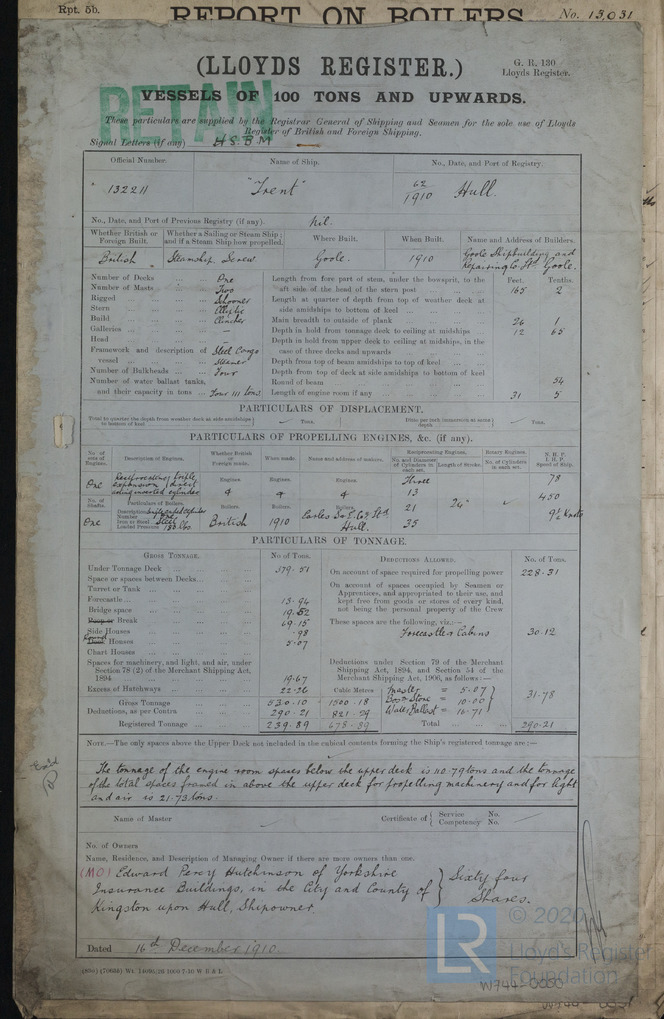 Rpt. 5b.
REPORT ON BOILERS
No. 13,031
(LLOYDS REGISTER.)
G. R. 130
Lloyds Register.
RETAIN
VESSELS OF 100 TONS AND UPWARDS.
These particulars are supplied by the Registrar General of Shipping and Seamen for the sole use of Lloyds
Register of British and Foreign Shipping.
Signal Letters (if any) H.S.B.M
Official Number. Name of Ship. No., Date, and Port of Registry.
132211 "Trent" 62/1910 Hull.
No., Date, and Port of Previous Registry (if any). Nil.
Whether British or Foreign Built. Whether a Sailing or Steam Ship; and if a Steam Ship how propelled. Where Built. When Built. Name and Address of Builders.
British Steamship. Screw Goole. 1910 Goole Shipbuilding and Repairing Co. Ltd. Goole.
Number of Decks One
Number of Masts Two
Rigged Schooner
Stern Elliptic
Build Clincher
Galleries —
Head —
Framework and description of vessel Steel Cargo Steamer
Number of Bulkheads Four
Number of water ballast tanks, and their capacity in tons Four 111 tons
Feet. Tenths.
Length from fore part of stem, under the bowsprit, to the aft side of the head of the stern post 165 2
Length at quarter of depth from top of weather deck at side amidships to bottom of keel
Main breadth to outside of plank 26 1
Depth in hold from tonnage deck to ceiling at midships 12 65
Depth in hold from upper deck to ceiling at midships, in the case of three decks and upwards
Depth from top of beam amidships to top of keel
Depth from top of deck at side amidships to bottom of keel
Round of beam 54
Length of engine room if any 31 5
PARTICULARS OF DISPLACEMENT.
Total to quarter the depth from weather deck at side amidships to bottom of keel Tons. Ditto per inch immersion at same depth Tons.
PARTICULARS OF PROPELLING ENGINES, &c. (if any).
No. of sets of Engines. Description of Engines. Whether British or Foreign made. When made. Name and address of makers. Reciprocating Engines. Rotary Engines. N.H.P. I.H.P. Speed of Ship.
No. and Diameter of Cylinders in each set. Length of Stroke. No. of Cylinders in each set.
One Reciprocating triple expansion direct acting inverted cylinders
Engines. Engines. Engines.
Three
13
21
35
24"
78
450
9½ Knots
No. of Shafts. Particulars of Boilers.
Description
Number
Iron or Steel Steel
Loaded Pressure 180 lbs.
Boilers. Boilers. Boilers.
One British 1910 Earles S & E Co Ltd Hull.
PARTICULARS OF TONNAGE.
GROSS TONNAGE. No. of Tons. DEDUCTIONS ALLOWED. No. of Tons.
Under Tonnage Deck 379.51
Space or spaces between Decks
Turret or Trunk
Forecastle 13.94
Bridge space 19.52
Poop or Break 69.15
Side Houses .98
Round Houses 5.07
Chart Houses
Spaces for machinery, and light, and air, under Section 78 (2) of the Merchant Shipping Act, 1894 19.67
Excess of Hatchways 22.26
Cubic Metres
Gross Tonnage 530.10 1500.18
Deductions, as per Contra 290.21 821.29
Registered Tonnage 239.89 678.89
On account of space required for propelling power 228.31
On account of spaces occupied by Seamen or Apprentices, and appropriated to their use, and kept free from goods or stores of every kind, not being the personal property of the Crew
These spaces are the following, viz.:—
Forecastle & Cabins 30.12
Deductions under Section 79 of the Merchant Shipping Act, 1894, and Section 54 of the Merchant Shipping Act, 1906, as follows:—
Master = 5.07
Boatn Store = 10.00
Water Ballast = 16.71
31.78
Total 290.21
NOTE.—The only spaces above the Upper Deck not included in the cubical contents forming the Ship's registered tonnage are:—
The tonnage of the engine room spaces below the upper deck is 110.79 tons and the tonnage
of the total spaces framed in above the upper deck for propelling machinery and for light
and air is 21.73 tons.
Name of Master Certificate of Service No. Competency No.
No. of Owners
Name, Residence, and Description of Managing Owner if there are more owners than one.
(MO) Edward Percy Hutchinson of Yorkshire
Insurance Buildings, in the City and County of
Kingston upon Hull, Shipowner.
Sixty four
Shares.
Dated 16th December 1910.
LR
© 2020
Lloyd's Register
Foundation